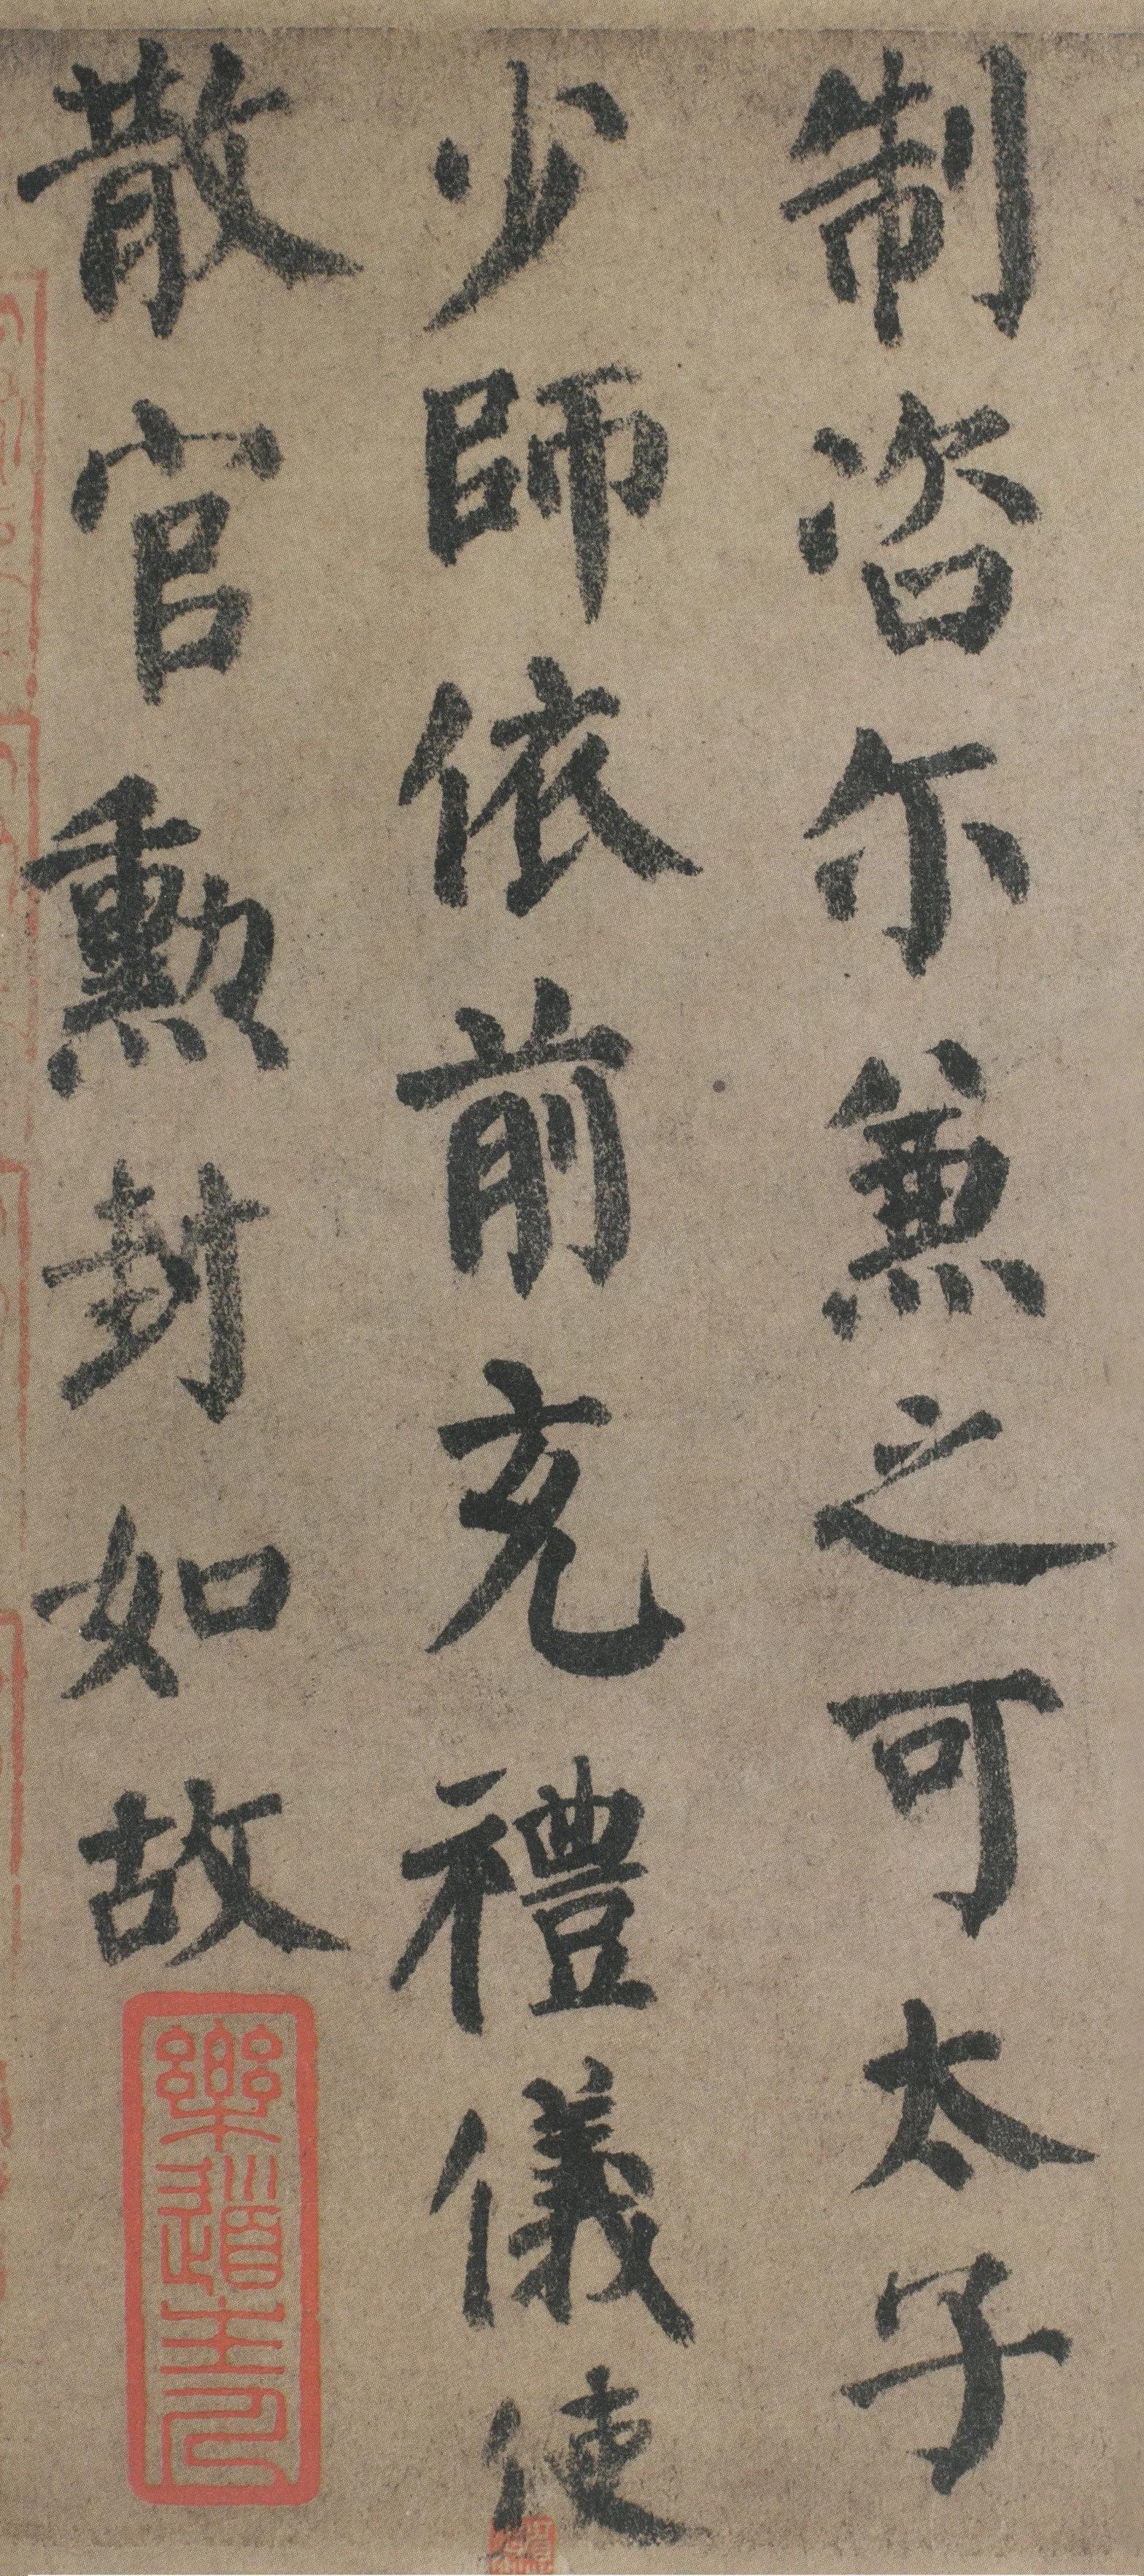 制咨尔兼之可太子
少師依前充禮儀使
散官勳封如故
樂道主人